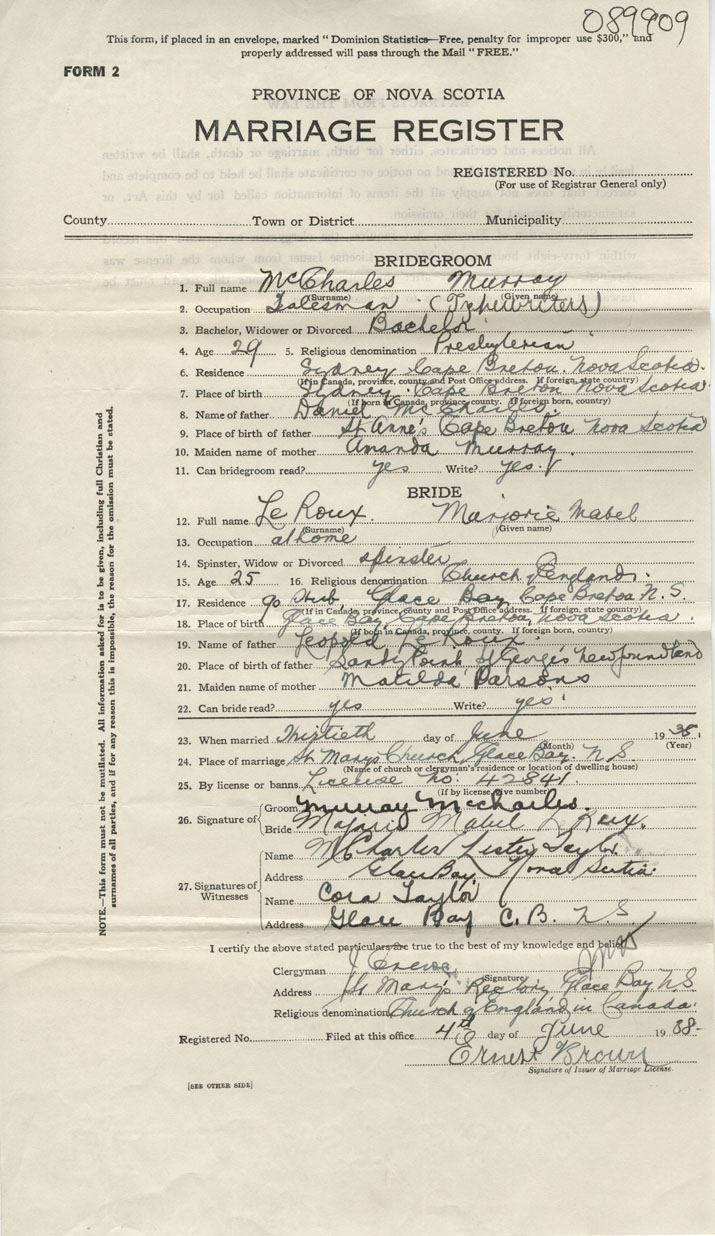 089909
This form, if placed in an envelope, marked "Dominion Statistics—Free, penalty for improper use $300," and
properly addressed will pass through the Mail "FREE."
FORM 2
PROVINCE OF NOVA SCOTIA
MARRIAGE REGISTER
REGISTERED No.
(For use of Registrar General only)
County Town or District Municipality
BRIDEGROOM
1. Full name McCharles Murray
(Surname) (Given name)
2. Occupation Salesman (Typewriters)
3. Bachelor, Widower or Divorced Bachelor
4. Age 29 5. Religious denomination Presbyterian
6. Residence Sydney Cape Breton. Nova Scotia.
(If in Canada, province, county and Post Office address. If foreign, state country)
7. Place of birth Sydney. Cape Breton Nova Scotia
(If born in Canada, province, county. If foreign born, country)
8. Name of father Daniel McCharles.
9. Place of birth of father St Anne's Cape Breton Nova Scotia
10. Maiden name of mother Amanda Murray.
11. Can bridegroom read? yes Write? yes.
BRIDE
12. Full name Le Roux. Marjorie Mabel
(Surname) (Given name)
13. Occupation at home
14. Spinster, Widow or Divorced spinster
15. Age 25 16. Religious denomination Church of England.
17. Residence Glace Bay Cape Breton N. S.
(If in Canada, province, county and Post Office address. If foreign, state country)
18. Place of birth Glace Bay, Cape Breton, Nova Scotia.
(If born in Canada, province, county. If foreign born, country)
19. Name of father Leopold Le Roux.
20. Place of birth of father Sandy Point St George's Newfoundland
21. Maiden name of mother Matilda Parsons
22. Can bride read? yes Write? yes
23. When married Thirtieth day of June 1938.
(Month) (Year)
24. Place of marriage St. Mary's Church, Glace Bay. N S
(Name of church or clergyman's residence or location of dwelling house)
25. By license or banns License no: 42841.
(If by license give number)
26. Signature of Groom Murray McCharles.
Bride Marjorie Mabel Le Roux.
Name McCharles Lester Taylor.
Address Glace Bay, Nova Scotia.
27. Signatures of Witnesses
Name Cora Taylor
Address Glace Bay C. B. N S
I certify the above stated particulars are true to the best of my knowledge and belief.
Clergyman
(Signature)
Address St Mary's Rectory, Glace Bay N S
Religious denomination Church of England in Canada.
Registered No. Filed at this office 4th day of June 1938-
Ernest Brown
Signature of Issuer of Marriage License.
[SEE OTHER SIDE]
NOTE.—This form must not be mutilated. All information asked for is to be given, including full Christian and
surnames of all parties, and if for any reason this is impossible, the reason for the omission must be stated.